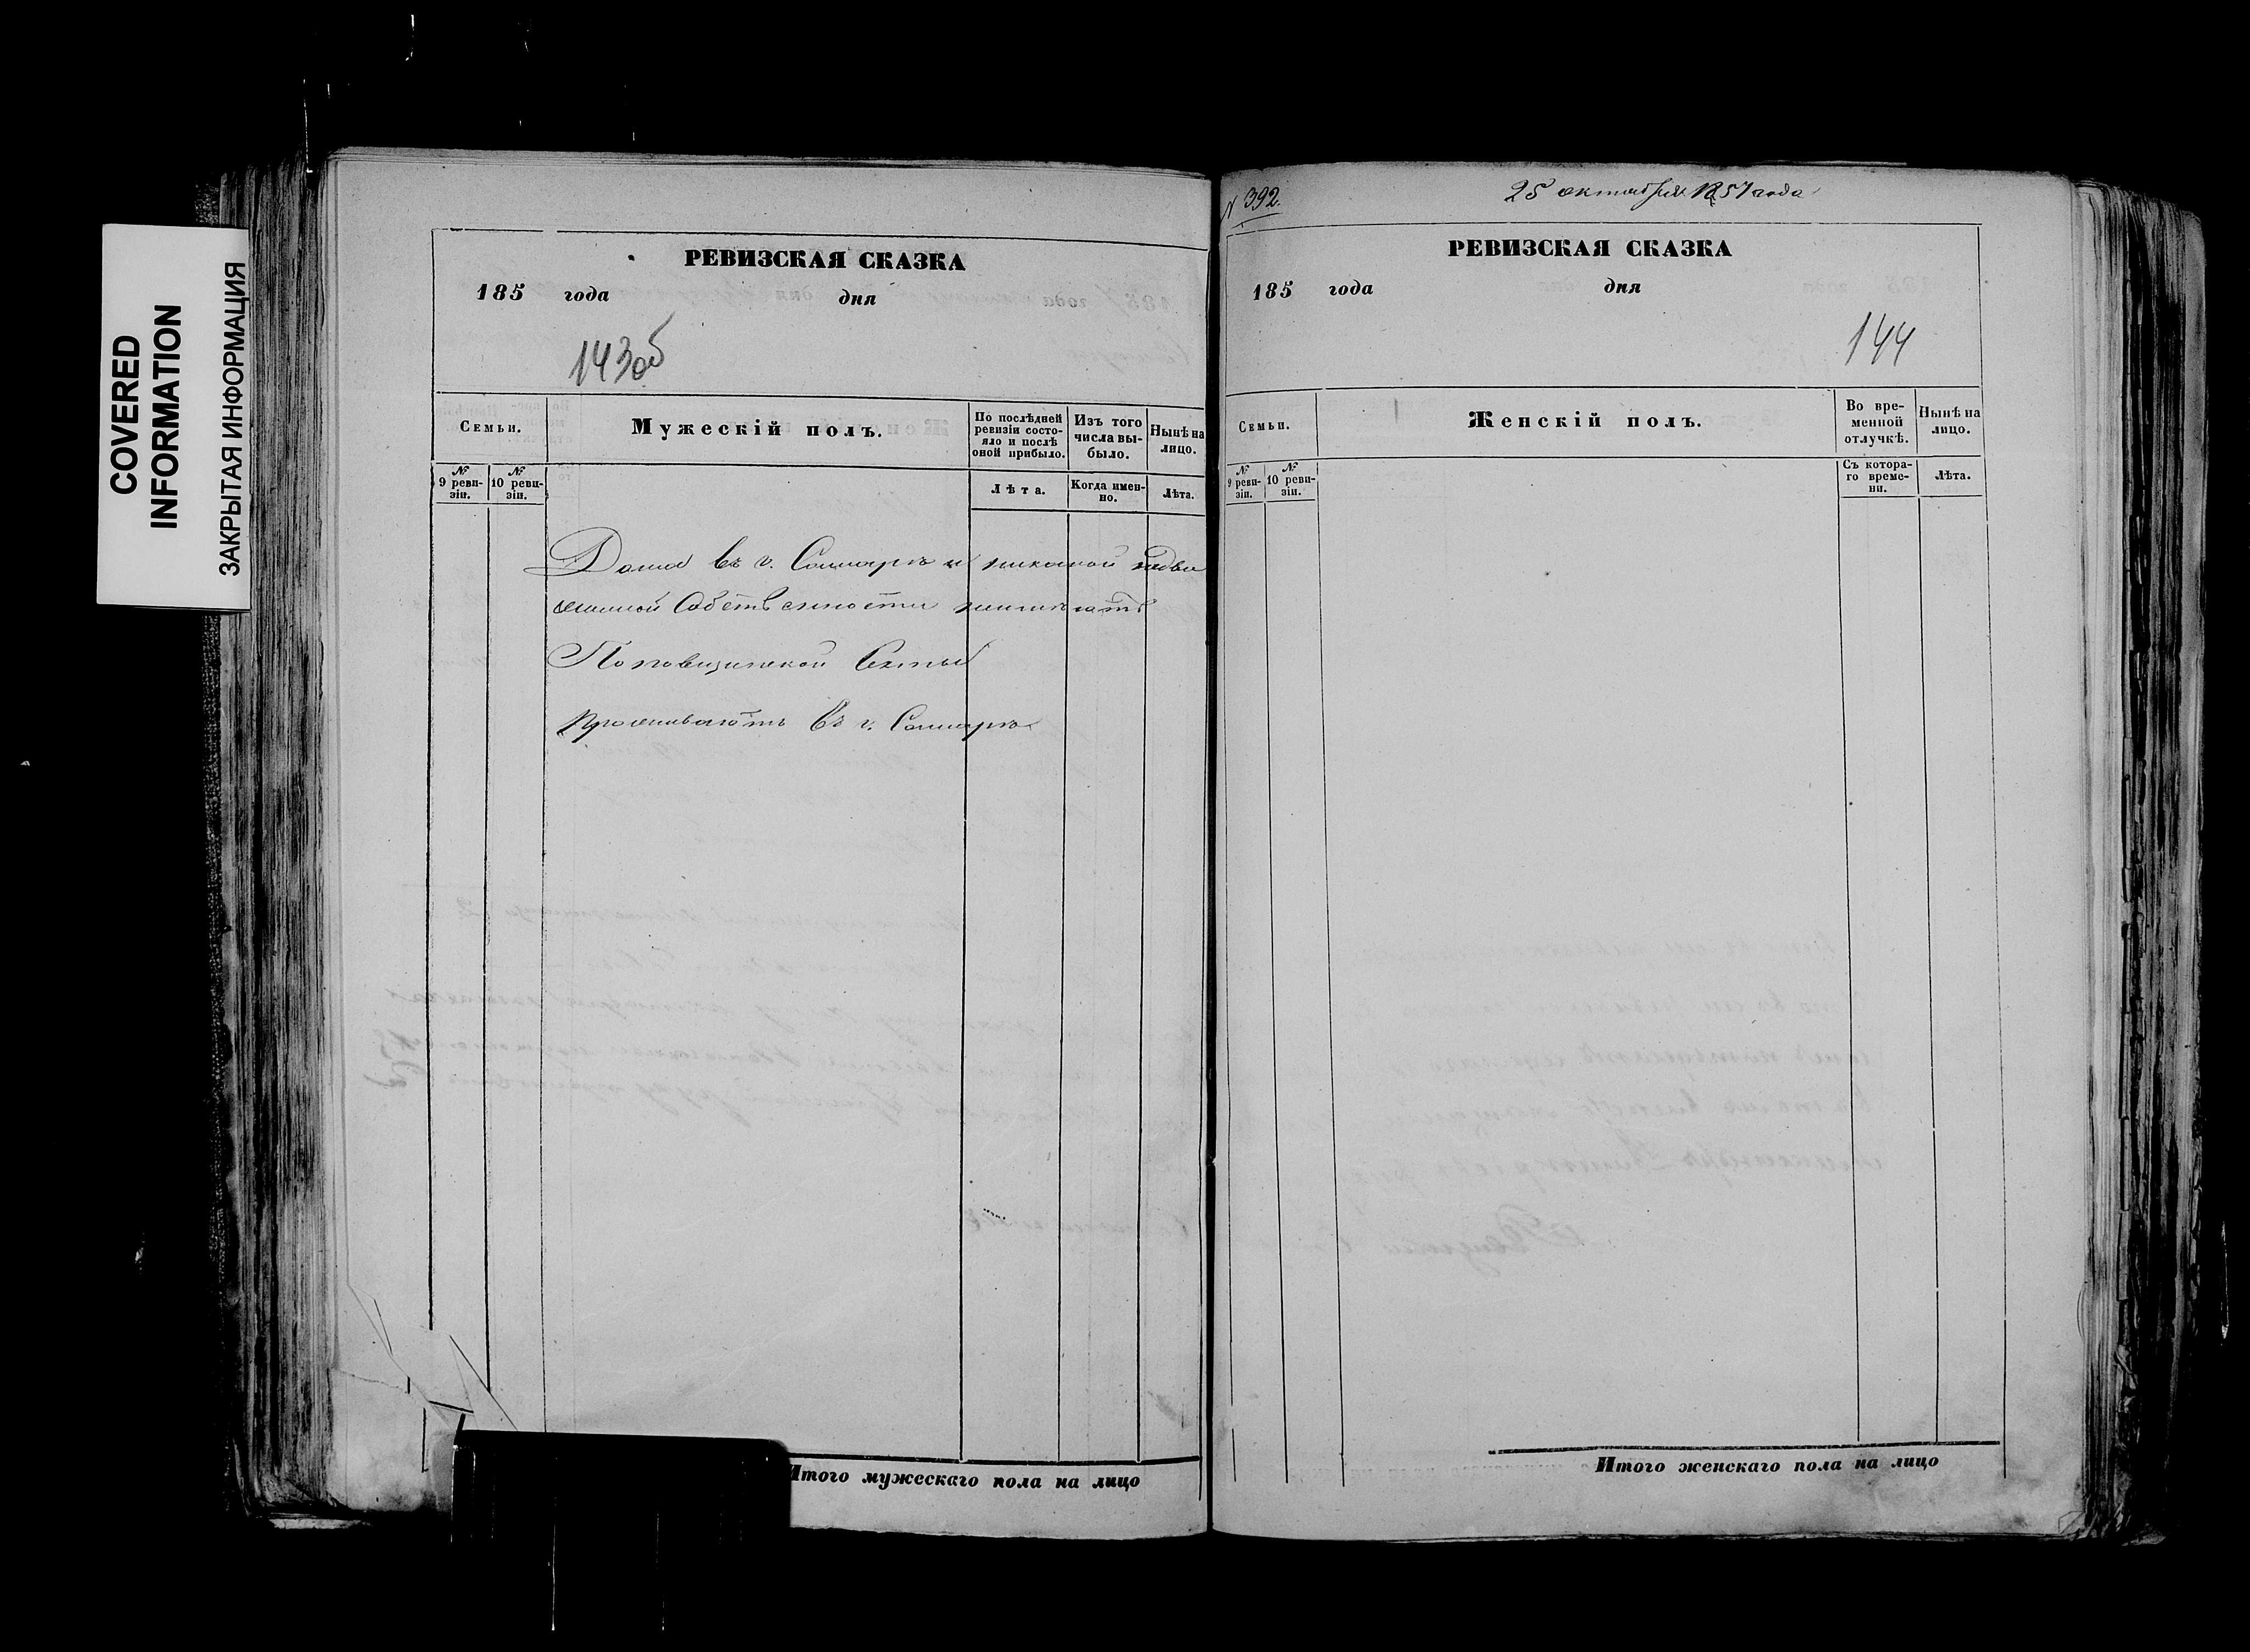 COVERED
INFORMATION
ЗАКРЫТАЯ ИНФОРМАЦИЯ
РЕВИЗСКАЯ СКАЗКА
185 года дня
143об
Семьи.
Мужескій полъ.
По послѣдней
ревизіи состо-
яло и послѣ
оной прибыло.
Изъ того
числа вы-
было.
Нынѣ на
лицо.
№
9 реви-
зіи.
№
10 реви-
зіи.
Лѣта.
Когда имен-
но.
Лѣта.
Дома въ г. Самарѣ и никакой недви
жимой собственности неимѣютъ
Поповщинской Секты
Проживаютъ въ г. Самарѣ
Итого мужескаго пола на лицо
N 392.
25 октября 1857 года
РЕВИЗСКАЯ СКАЗКА
185 года дня
144
Семьи.
Женскій полъ.
Во вре-
менной
отлучкѣ.
Нынѣ на
лицо.
№
9 реви-
зіи.
№
10 реви-
зіи.
Съ котора-
го време-
ни.
Лѣта.
Итого женскаго пола на лицо